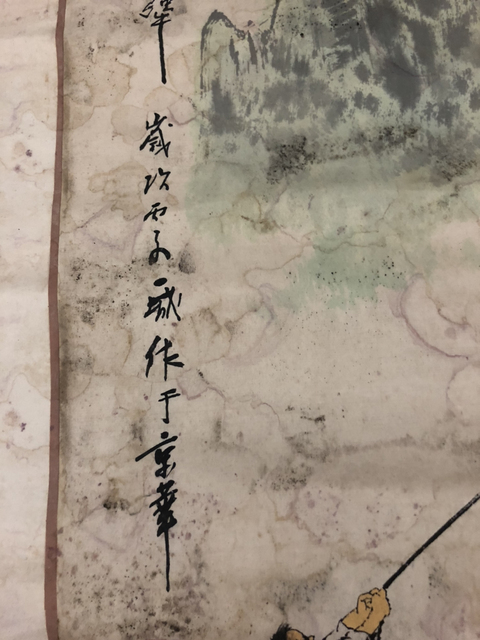 歲次丙子 作于京華